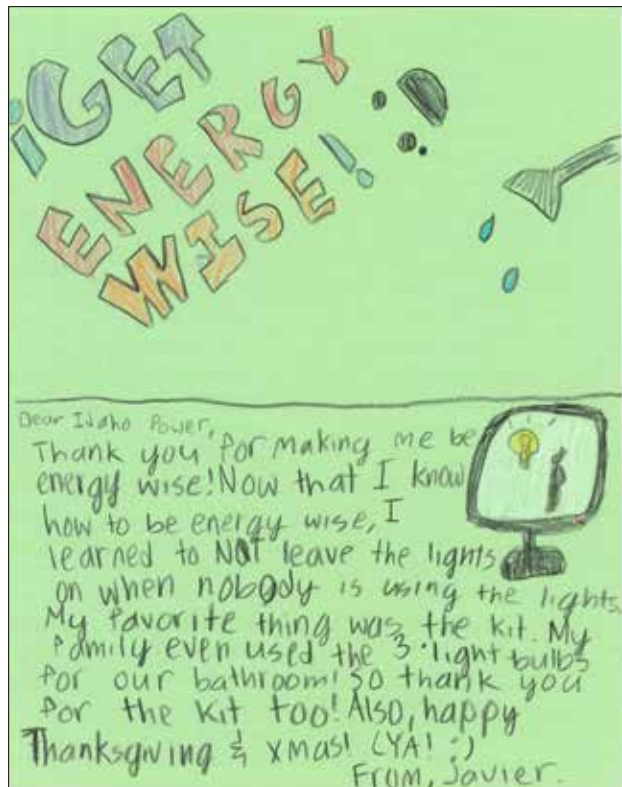 ¡GET
ENERGY
WISE!
Dear Idaho Power,
Thank you for making me be
energy wise! Now that I know
how to be energy wise, I
learned to NOT leave the lights
on when nobody is using the lights.
My favorite thing was the kit. My
family even used the 3 light bulbs
for our bathroom! So thank you
for the kit too! Also, happy
Thanksgiving & xmas! (YA! :)
From, Javier.